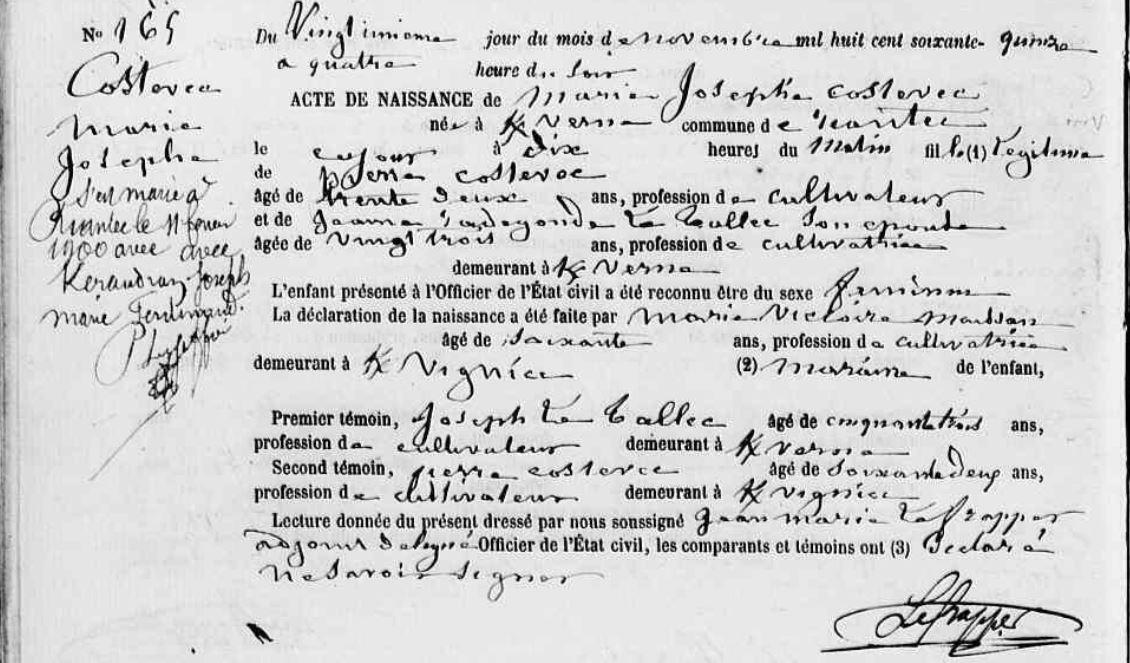 No 165
Costevec
Marie
Josepha
S'est mariée à
le 11 fevrier
1900 avec avec
Kerandran Joseph
Marie Ferdinand.
Du Vingtunieme jour du mois de novembre mil huit cent soixante-quinze
a quatre heure du soir
ACTE DE NAISSANCE de Marie Josepha Costevec
née à K Verna commune de
le cejour à dix heures du Matin fille (1) Legitime
de pierre costevec
âgé de trente deux ans, profession de cultivateur
et de Jeanne Le Tallec son epouse
âgée de vingt trois ans, profession de cultivatrice
demeurant à K Verna
L'enfant présenté à l'Officier de l'État civil a été reconnu être du sexe feminin
La déclaration de la naissance a été faite par Marie Victoire
âgé de soixante ans, profession de cultivatrice
demeurant à K Vignic (2) maraine de l'enfant,
Premier témoin, Joseph Le Tallec âgé de cinquantetrois ans,
profession de cultivateur demeurant à K Verna
Second témoin, pierre costevec âgé de Soixantedeux ans,
profession de cultivateur demeurant à K vignic
Lecture donnée du présent dressé par nous soussigné Jean marie Lefrapper
adjoint delegué Officier de l'État civil, les comparants et témoins ont (3) Declaré
ne Savoir signer
Lefrapper